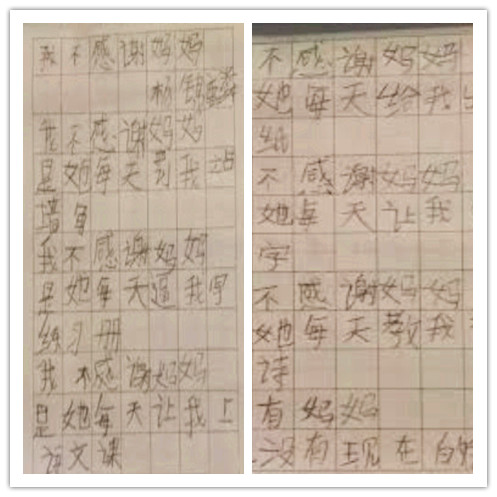 我不感谢妈妈
杨锦
我不感谢妈妈
是她每天罚我站
墙角
我不感谢妈妈
是她每天逼我字
练习册
我不感谢妈妈
是她每天让我上
语文课
不感谢妈妈
她每天给我
纸
不感谢妈妈
她每天让我
字
不感谢妈妈
她每天教我
诗
有妈妈
没有现在的